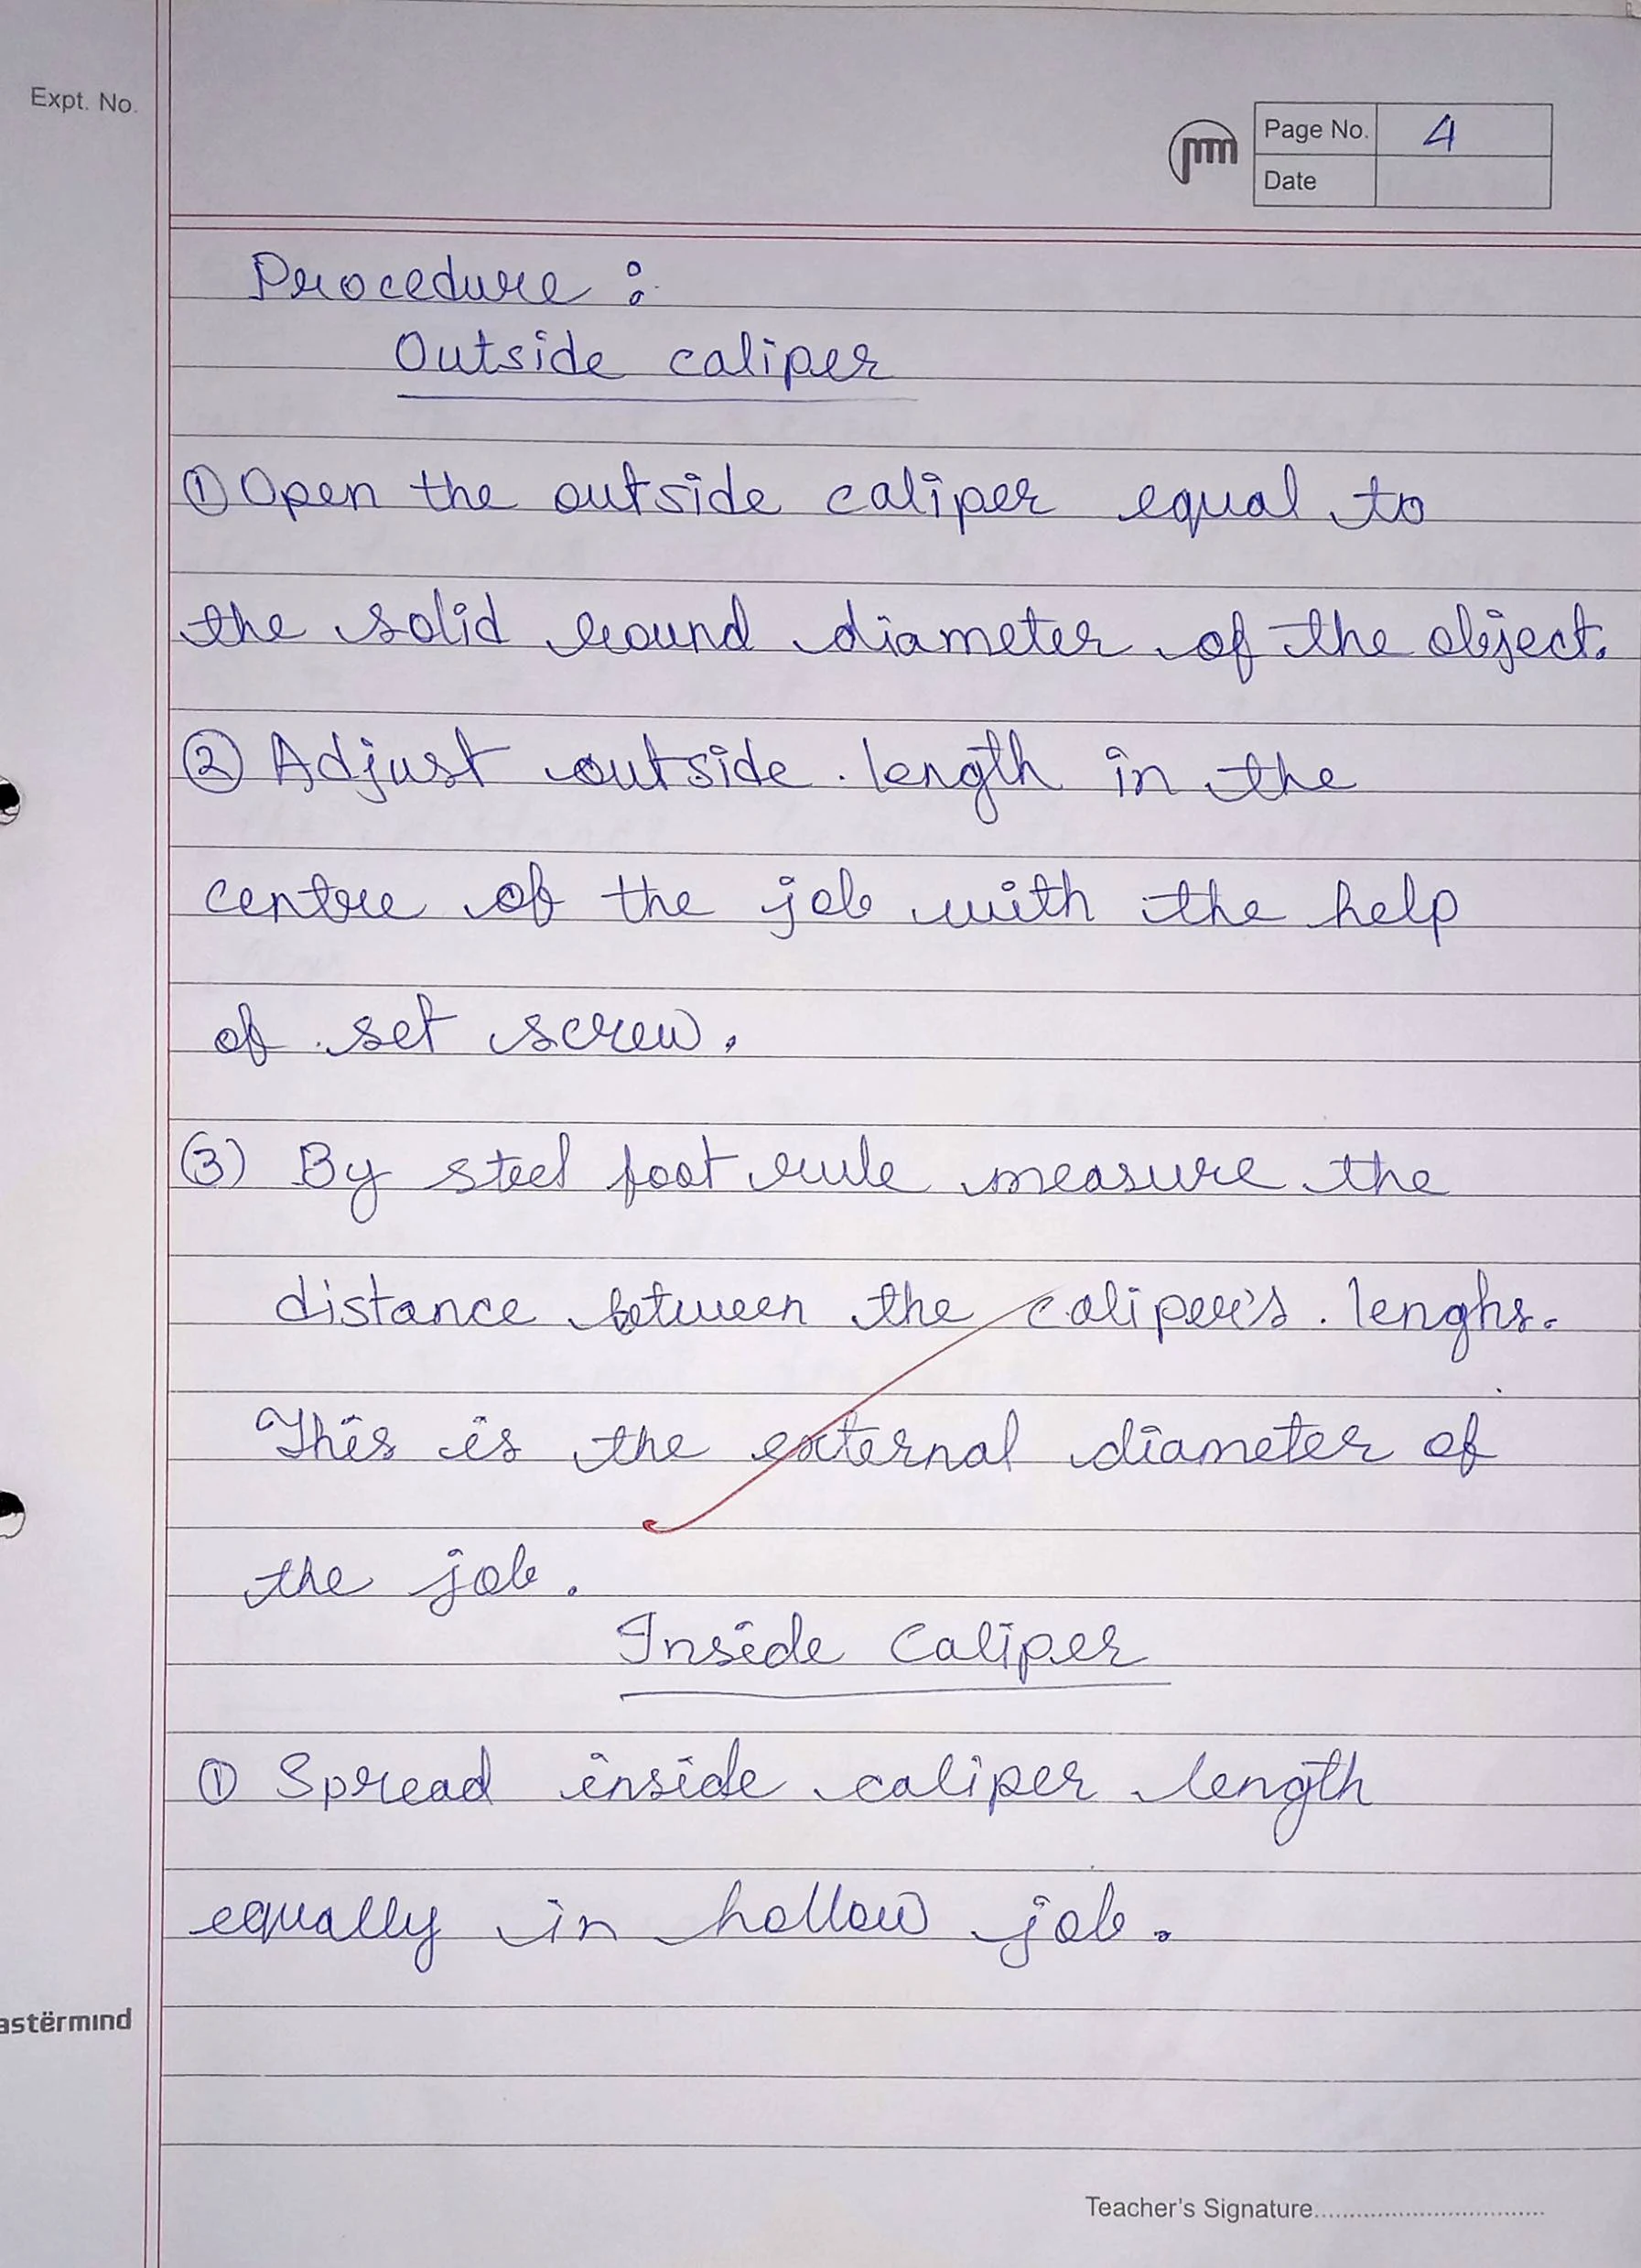 Expt. No.
Page No. 4
Date
Procedure :
Outside caliper
① Open the outside caliper equal to
the solid round diameter of the object.
② Adjust outside length in the
centre of the job with the help
of set screw.
③ By steel foot rule measure the
distance between the caliper's lenghs.
This is the external diameter of
the job.
Inside Caliper
① Spread inside caliper length
equally in hollow job.
astërmind
Teacher's Signature